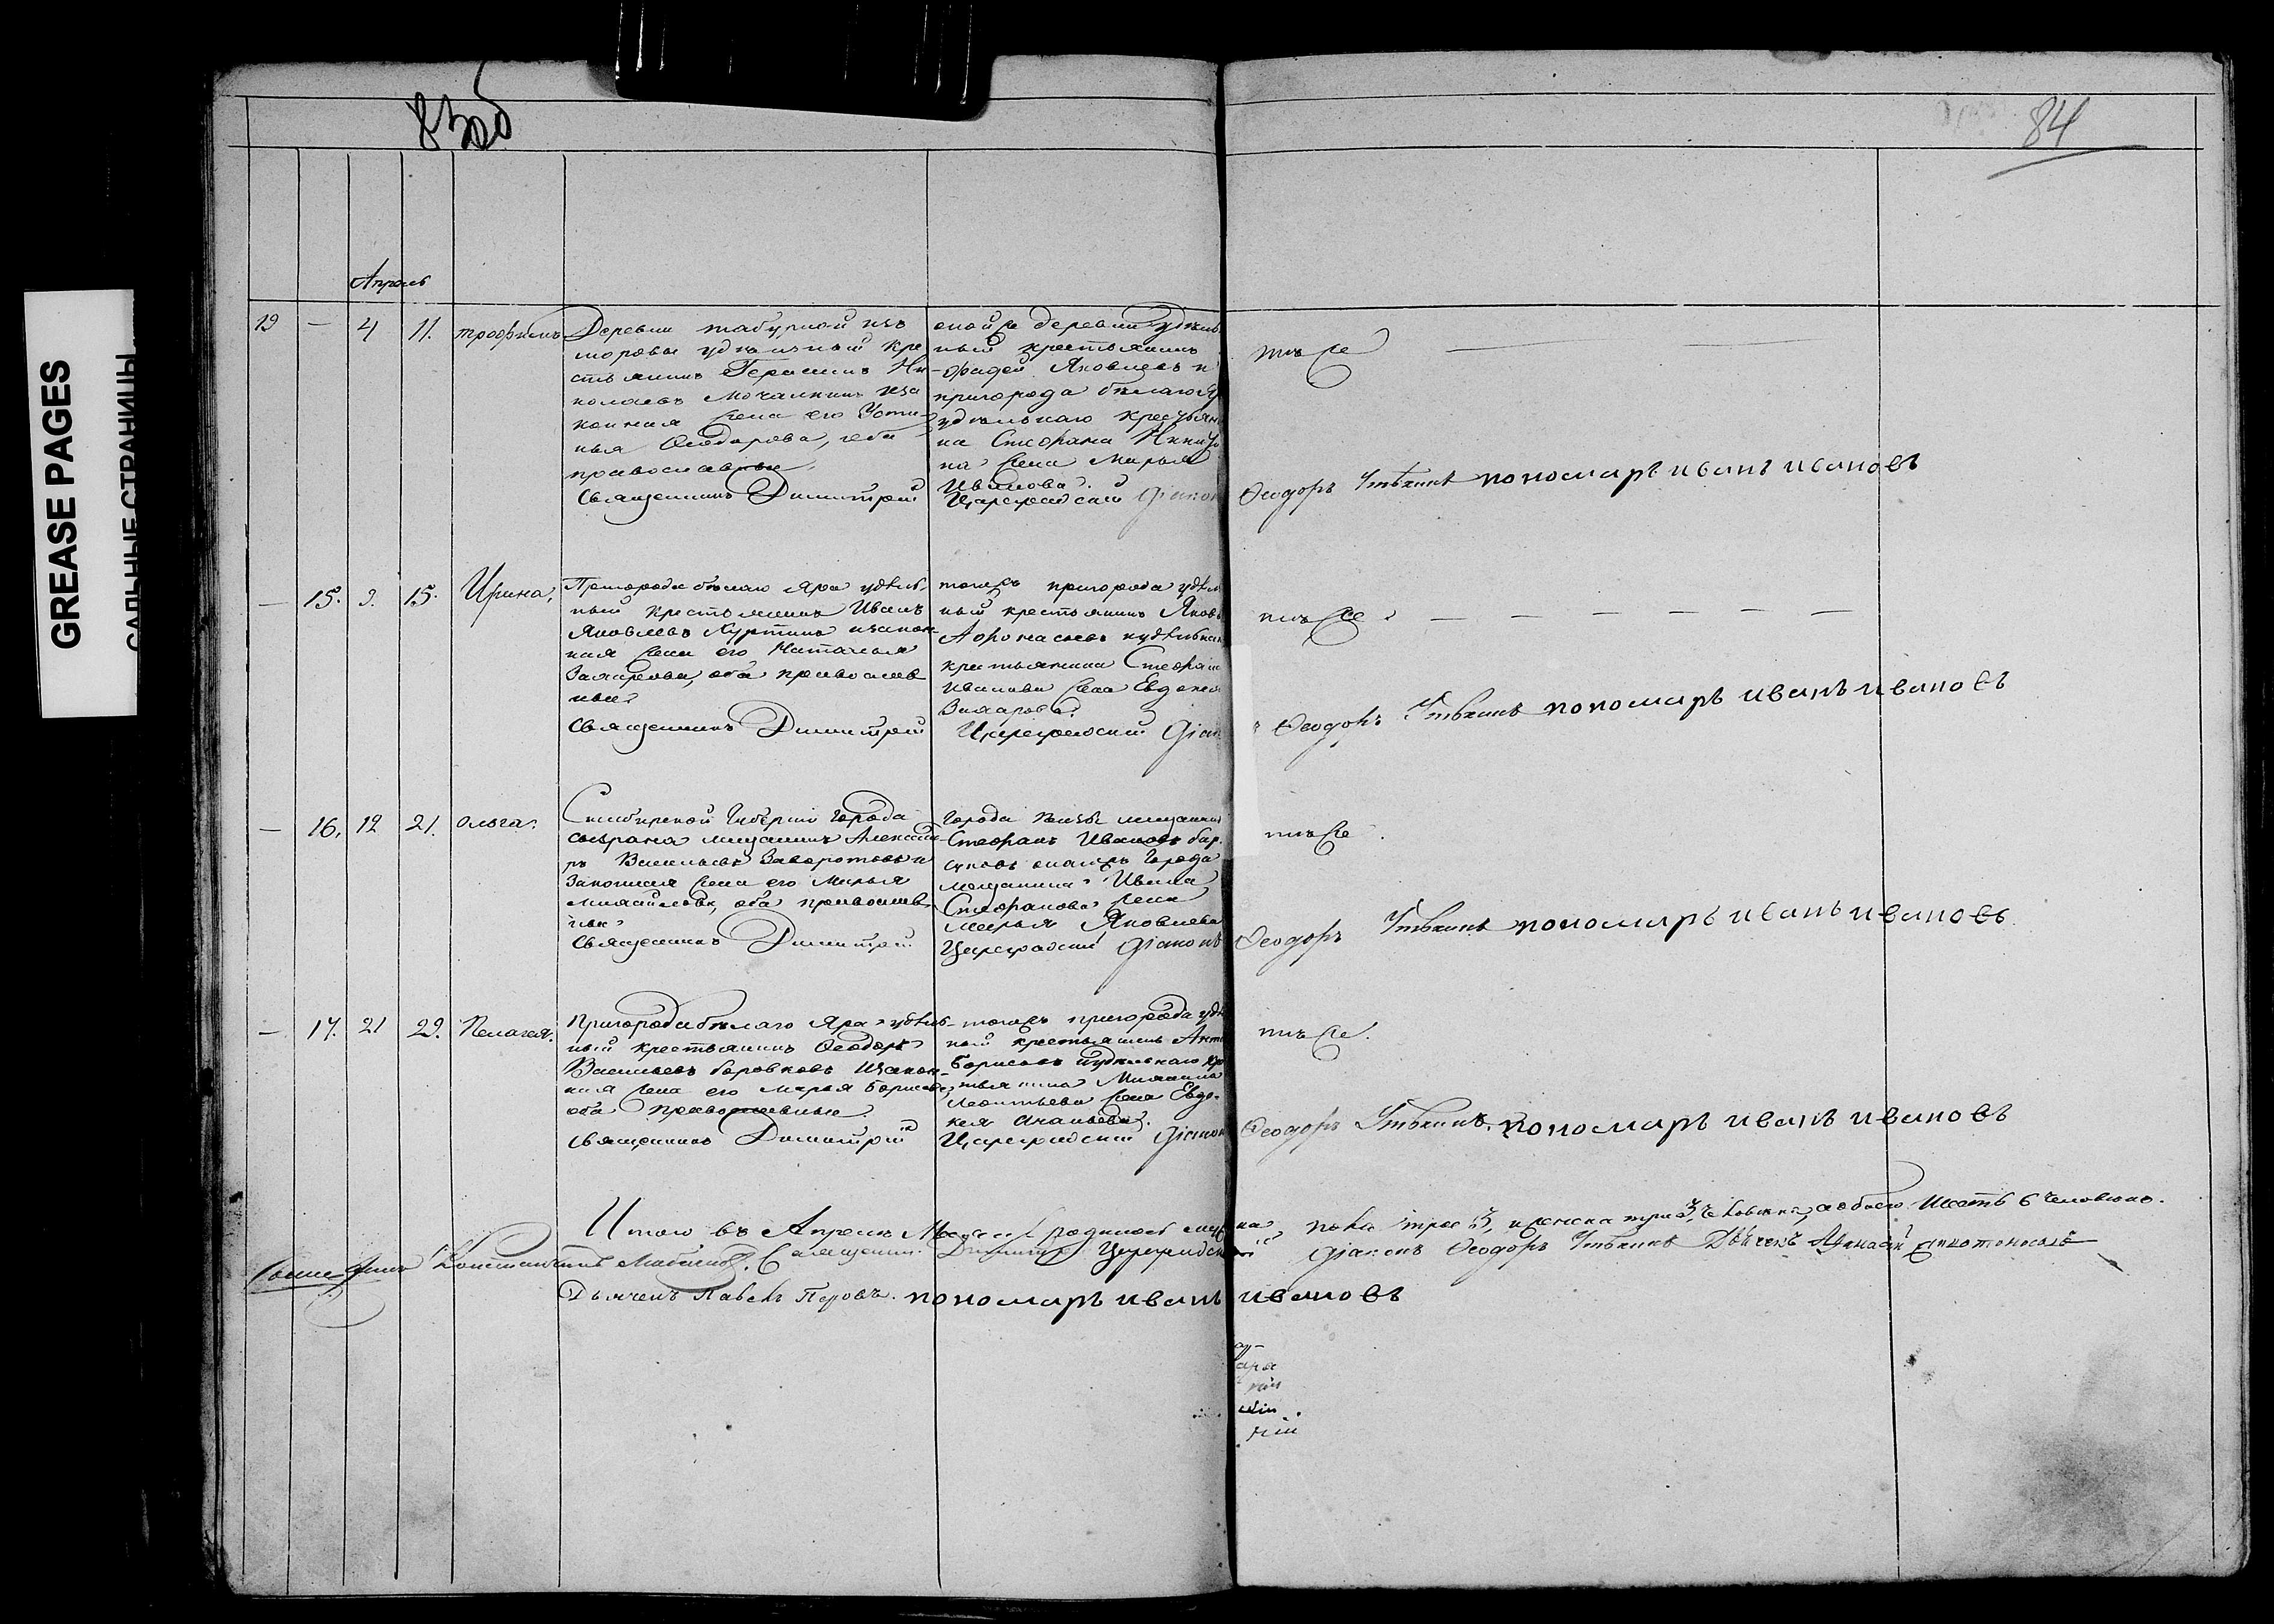 GREASE PAGES
САЛЬНЫЕ СТРАНИЦЫ
83об
84
Апрель
19 — 4 11. трофимъ
Деревни табурной изъ
удѣльный кре
стьянинъ Герасимъ Ни
колаевъ Мочалкинъ иза
конная жена его Усти
нья Ѳеодорова, оба
православные
Священникъ Димитрій
оной же деревни удѣль
ный крестьянинъ
Фадей Яковлевъ и
пригорода бѣлаго Яр
удѣльнаго крестьяни
на Стефана Никито
на жена Марья
Иванова.
Цареградскій Діакон
тѣ же
Ѳеодоръ Утѣхинъ пономарь иванъ ивановъ
— 15. 9. 15. Ирина.
Пригорода бѣлаго Яра удѣль
ный крестьянинъ Иванъ
Яковлевъ Куртинъ изакон
ная жена его Наталья
Захарова, оба православ
ные
Священникъ Димитрій
тогожъ пригорода удѣль
ный крестьянинъ Яковъ
Афонасьевъ иудѣльнаг
крестьянина Стефана
Иванова жена Евдокия
Захарова.
Цареградскій Діак
тѣ же
Ѳеодоръ Утѣхинъ пономарь иванъ ивановъ
— 16. 12 21. Ольга.
Симбирской Губерніи Города
сызрана мещанинъ Александ
ръ Васильевъ Заворотовъ и
Законная жена его Марья
Михайлова, оба православ
ные
Священникъ Димитрій
Города Пензы мещанинъ
Стефанъ Ивановъ бар
суковъ онагожъ Города
мещанина Ивана
Стефанова жена
Марья Яковлева
Цареградскій Діаконъ
тѣ же
Ѳеодоръ Утѣхинъ пономарь иванъ ивановъ
— 17. 21 29. Пелагея.
Пригорода бѣлаго Яра удѣль
ный крестьянинъ Ѳеодоръ
Васильевъ боровковъ изакон
ная жена его Марья Борисова,
оба православные
Священникъ Димитрій
тогожъ пригорода удѣ
ный крестьянинъ Анто
Борисовъ иудѣльнаго кре
стьянина Михаила
Леонтьева жена Евдо
кия Ананьева.
Цареградскій Діакон
тѣ же.
Ѳеодоръ Утѣхинъ. пономарь иванъ ивановъ
Итого въ Апрелѣ Месяцѣ родилось муж
ска пола трое 3, иженска три 3, человека, а обоего Шесть 6 человекъ.
Священникъ Димитрій Цареградскій Діаконъ Ѳеодоръ Утѣхинъ Дьячекъ
Дьячекъ Павелъ Перовъ. пономарь иванъ ивановъ